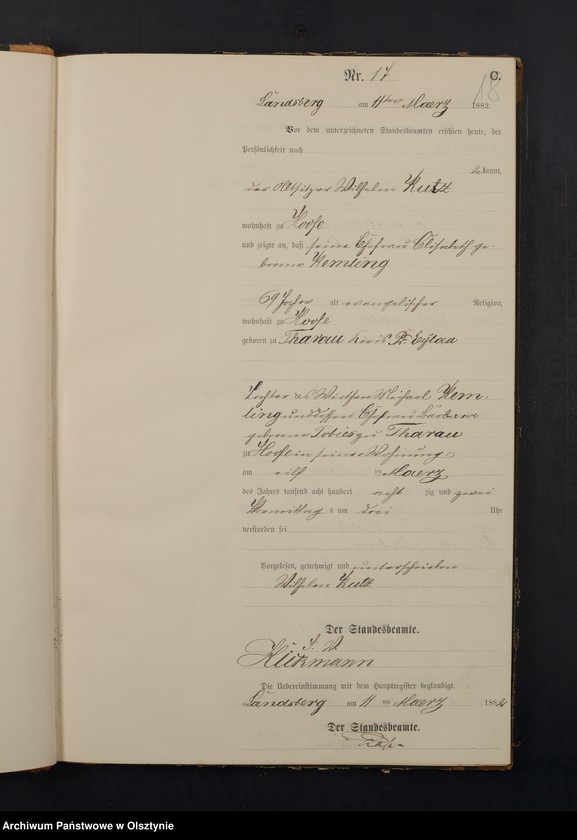 Nr. 17 C.
18
Landsberg am 11ten Maerz 1882.
Vor dem unterzeichneten Standesbeamten erschien heute, der
Persönlichkeit nach
bekannt,
der Altsitzer Wilhelm Kutz
wohnhaft zu Hoofe
und zeigte an, daß seine Ehefrau Elisabeth ge-
borene Hemling
69 Jahre alt evangelischer Religion,
wohnhaft zu Hoofe
geboren zu Tharau Kreis Pr. Eylau
Tochter des Wirthen Michael Hem-
ling und dessen Ehefrau Barbara
geborene Tobies zu Tharau
zu Hoofe in seiner Wohnung
am eilf ten Maerz
des Jahres tausend acht hundert acht zig und zwei
Vormittag s um drei Uhr
verstorben sei
Vorgelesen, genehmigt und unterschrieben
Wilhelm Kutz
Der Standesbeamte.
I. V.
Hückmann
Die Uebereinstimmung mit dem Hauptregister beglaubigt.
Landsberg am 11 ten Maerz 1882
Der Standesbeamte.
Archiwum Państwowe w Olsztynie